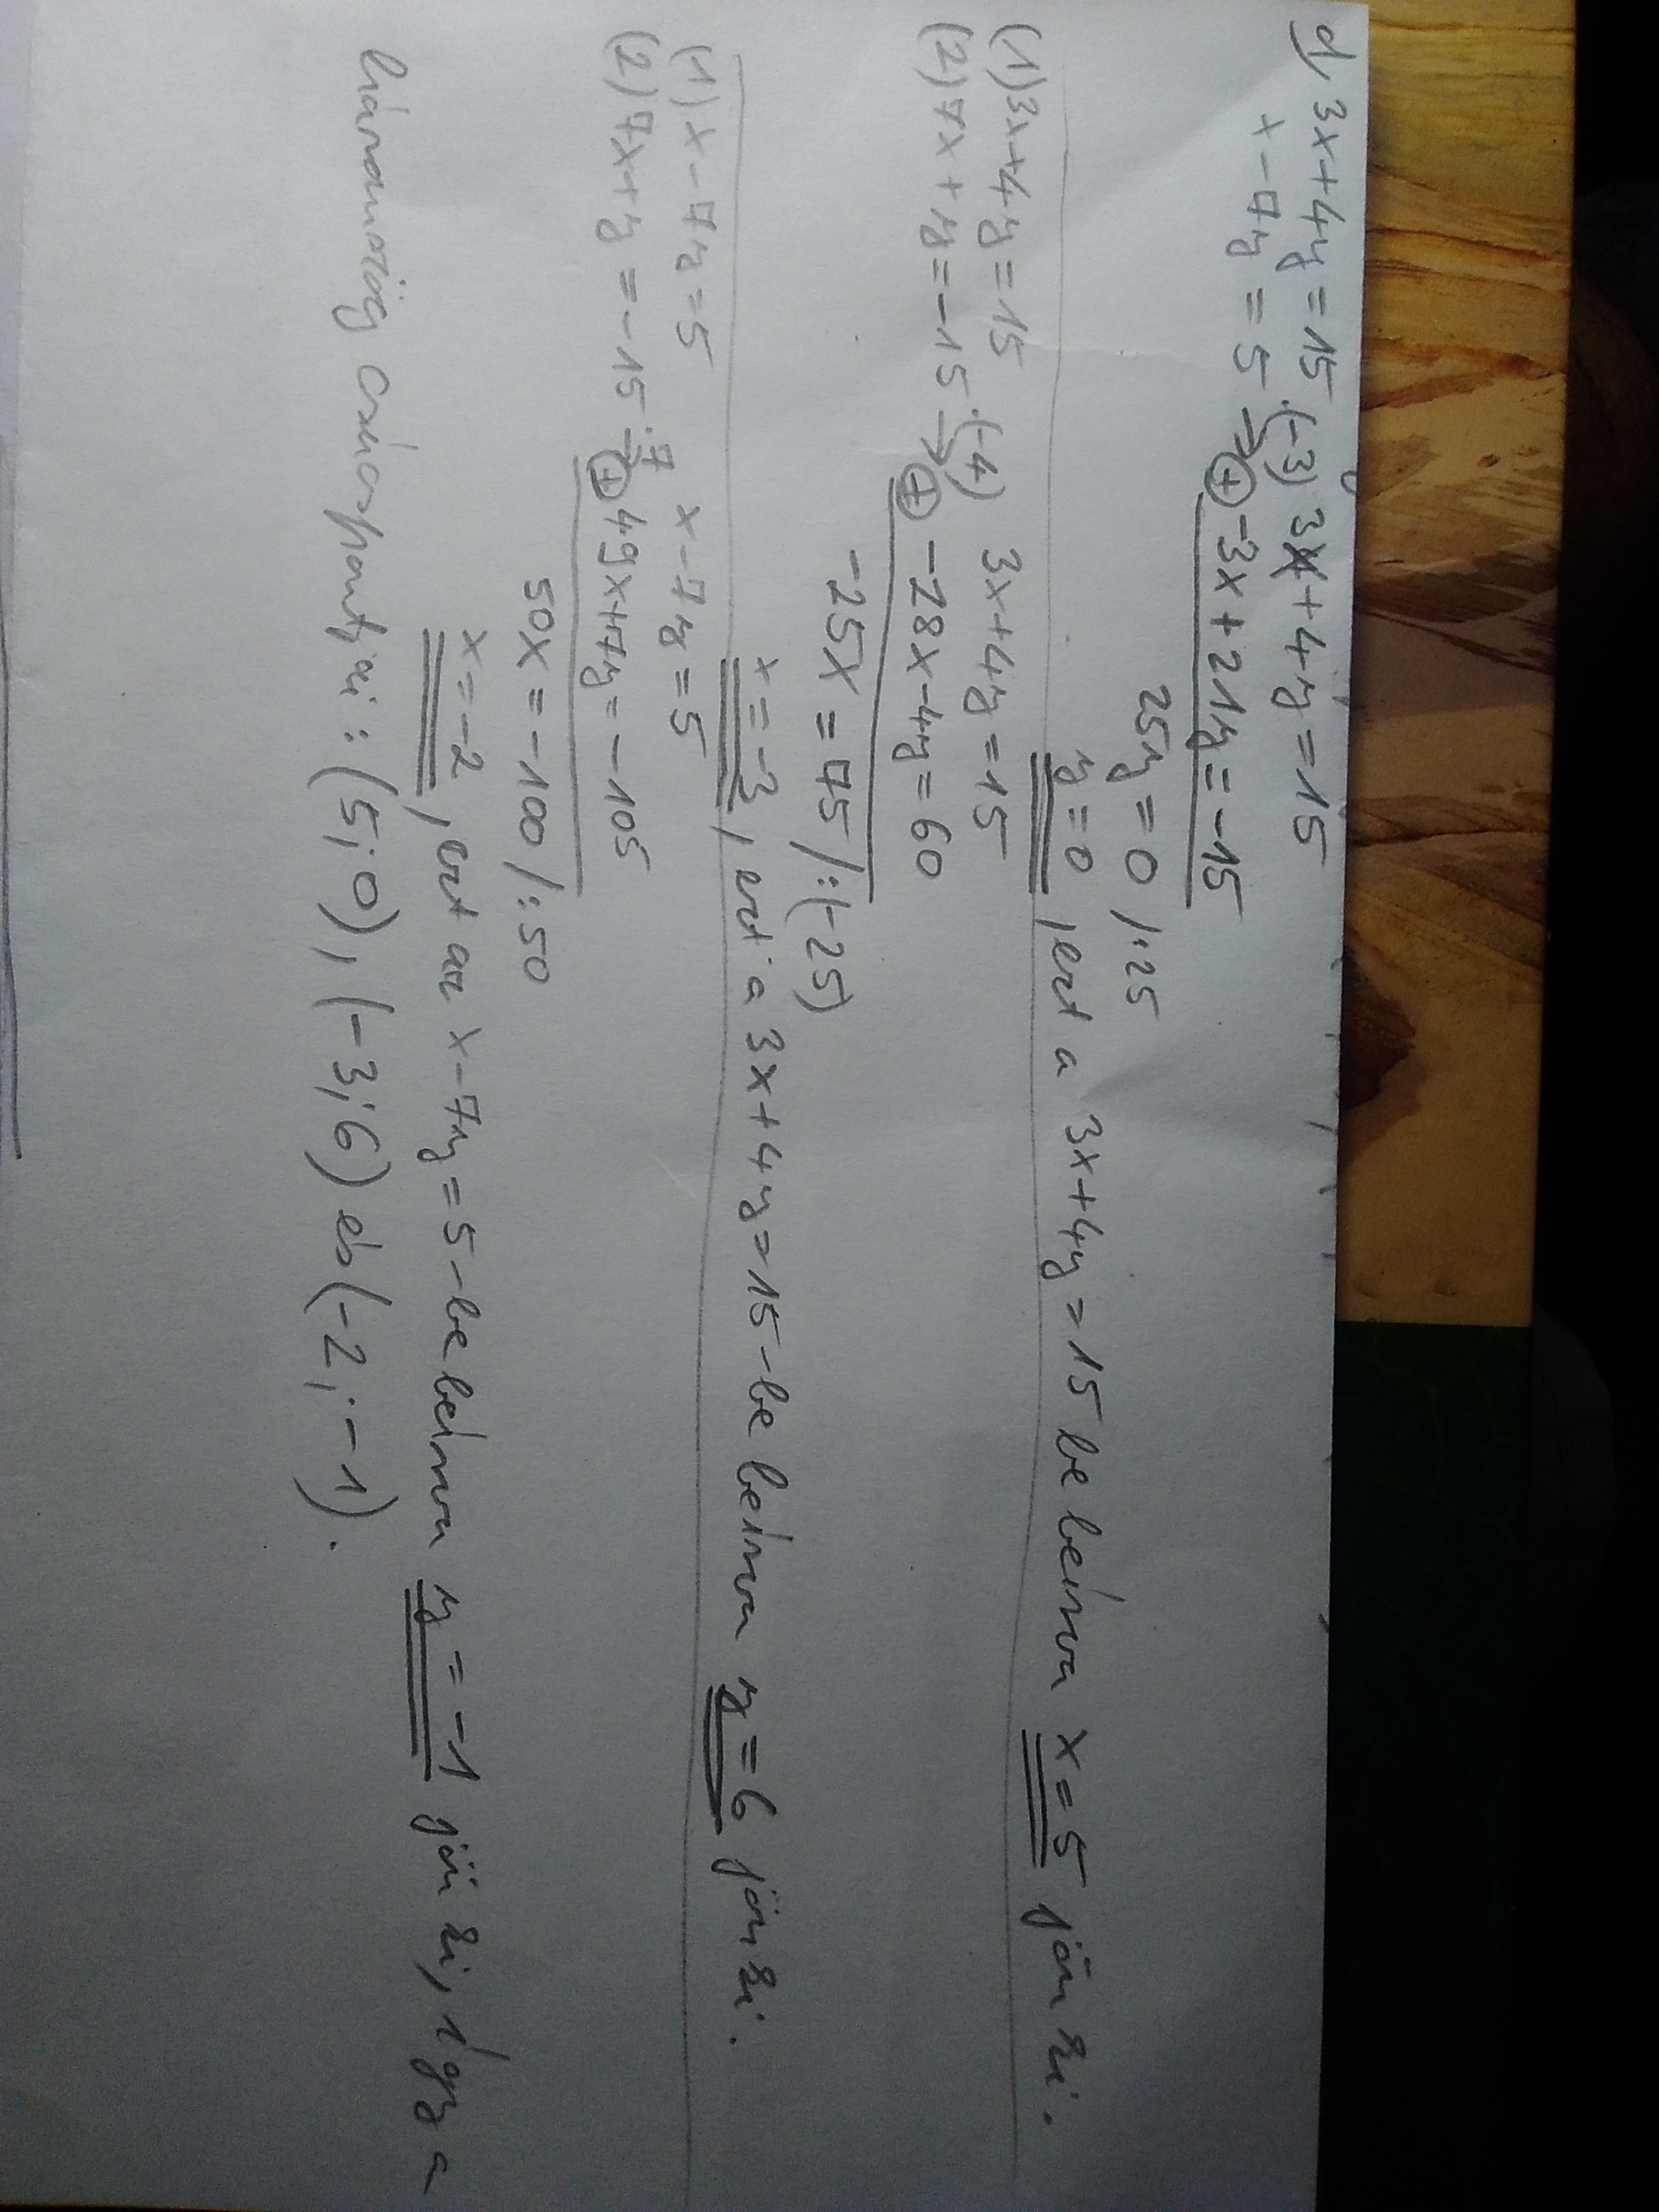 d, 3x+4y=15 3x+4y=15
x-7y=5 →·(-3) ⊕ -3x+21y=-15
25y=0 /:25
y=0, ezt a 3x+4y=15 be beírva x=5 jön ki.
(1) 3x+4y=15 3x+4y=15
(2) 7x+y=-15 →·(-4) ⊕ -28x-4y=60
-25x=75 /:(-25)
x=-3, ezt a 3x+4y=15-be beírva y=6 jön ki.
(1) x-7y=5 x-7y=5
(2) 7x+y=-15 →·7 ⊕ 49x+7y=-105
50x=-100 /:50
x=-2, ezt az x-7y=5-be beírva y=-1 jön ki, így a
háromszög csúcspontjai: (5;0), (-3;6) és (-2;-1).